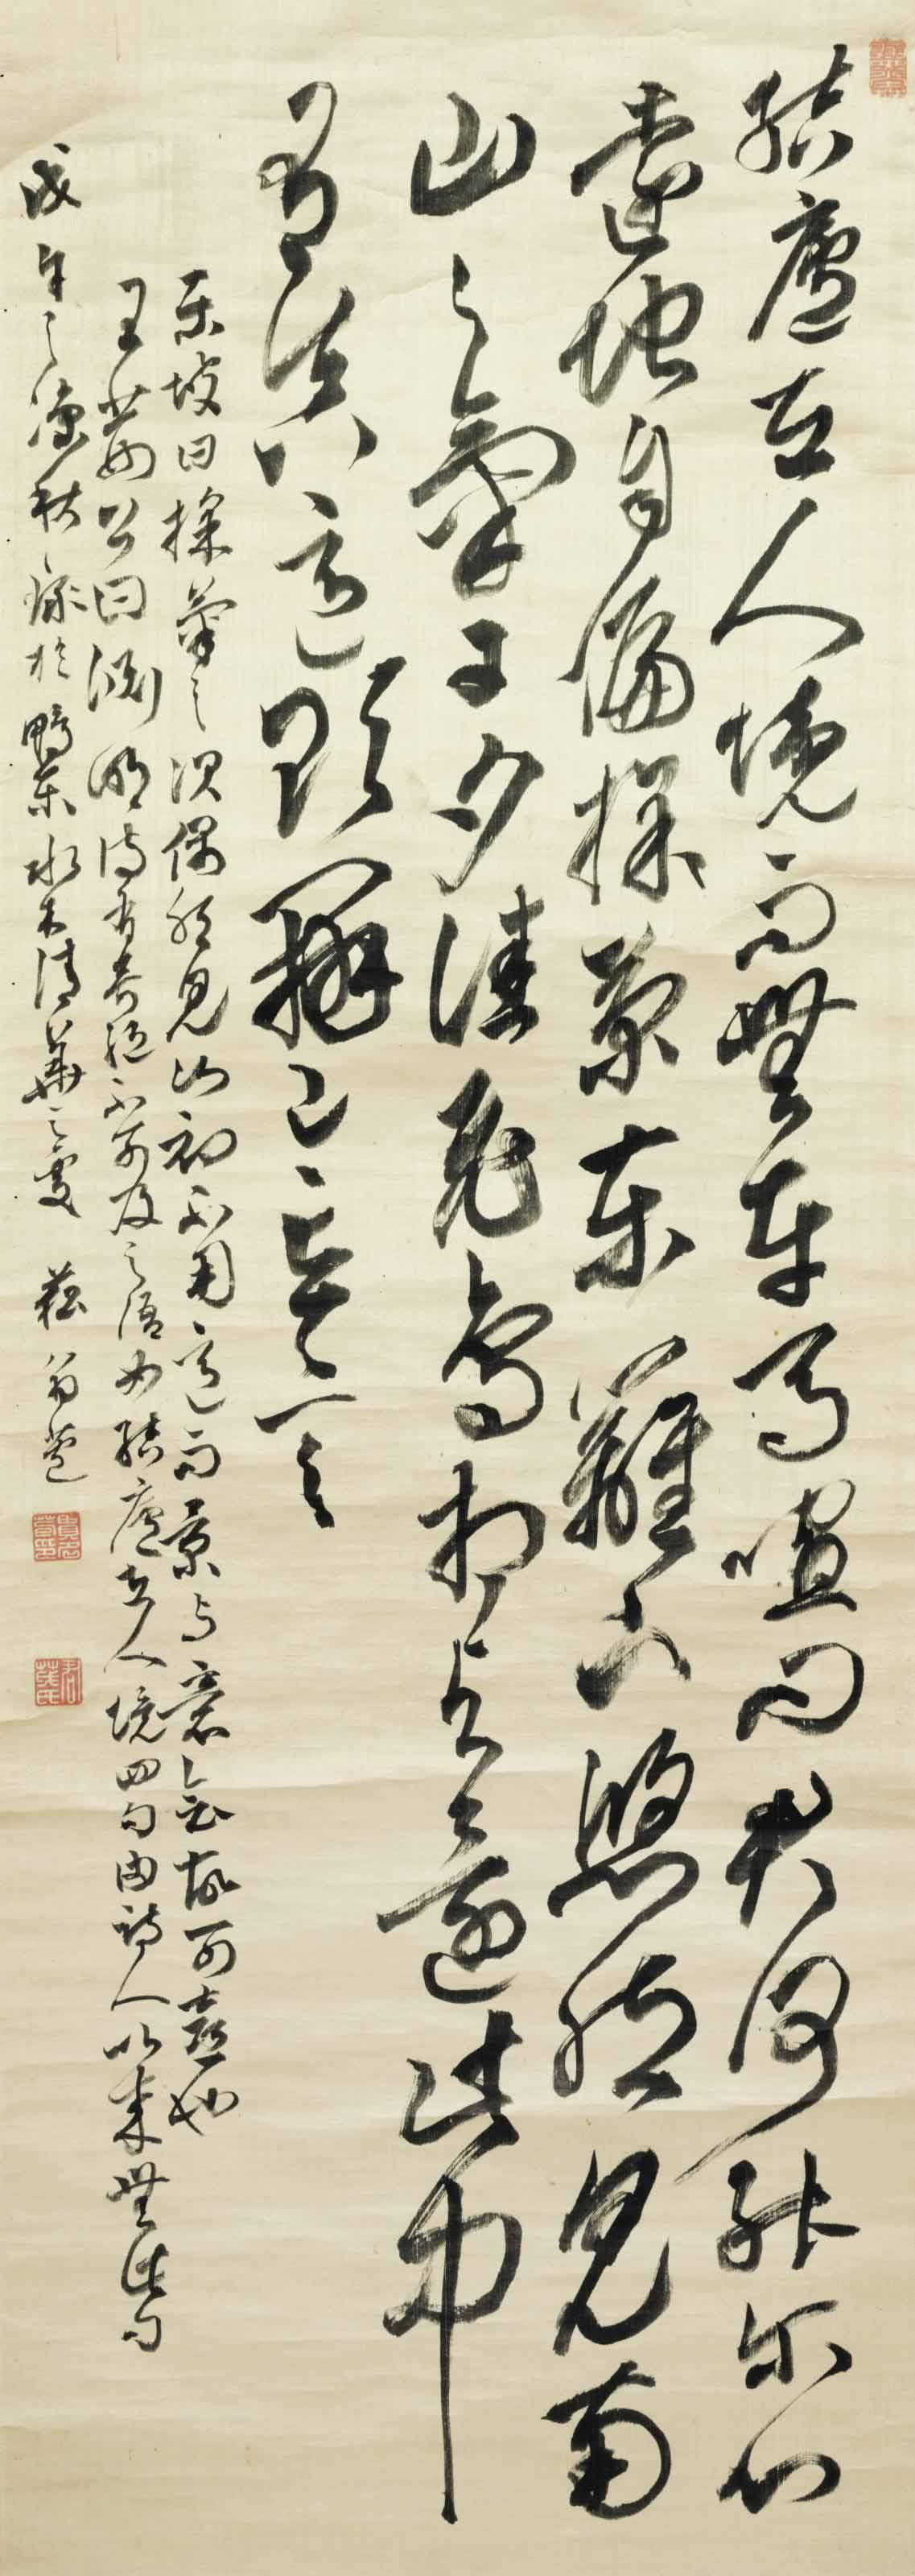 結廬在人境而無車馬喧問君何能尔心
遠地自偏採菊東籬下悠然見南
山々氣日夕佳飛鳥相与還此中
有真意欲辨已忘言
東坡曰採菊之次偶然見山初不用意而景与意會故可喜也
王荊公曰淵明詩有奇絶不可及之語如結廬在人境四句由詩人以来無此句
戊午之凉秋録於鴨東水木清華之處 菘翁苞
貫名苞印
君茂氏